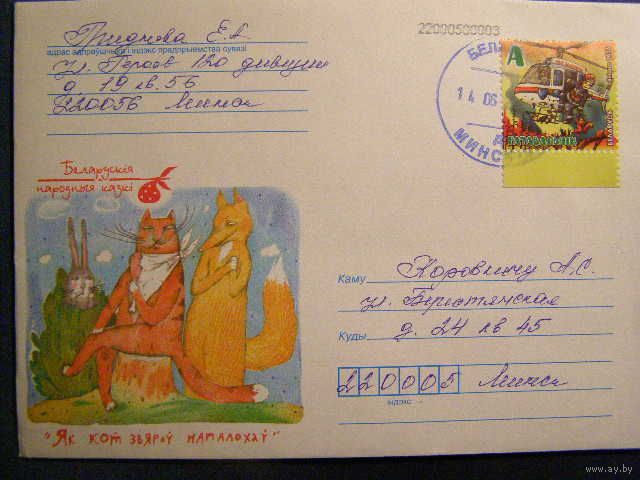 Пианова Е.А.
адрас адпраўшчыка і індэкс прадпрыемства сувязі
ул. Героев 120 дивизии
д 19 кв. 56
220056 Минск
22000500003
БЕЛА
14 06
МИНСК
A
Беларускія
народныя казкі
Каму Коровичу А.С.
ул. Берестянская
Куды д. 24 кв 45
220005 Минск
індэкс
"Як кот звяроў напалохаў"
www.ay.by